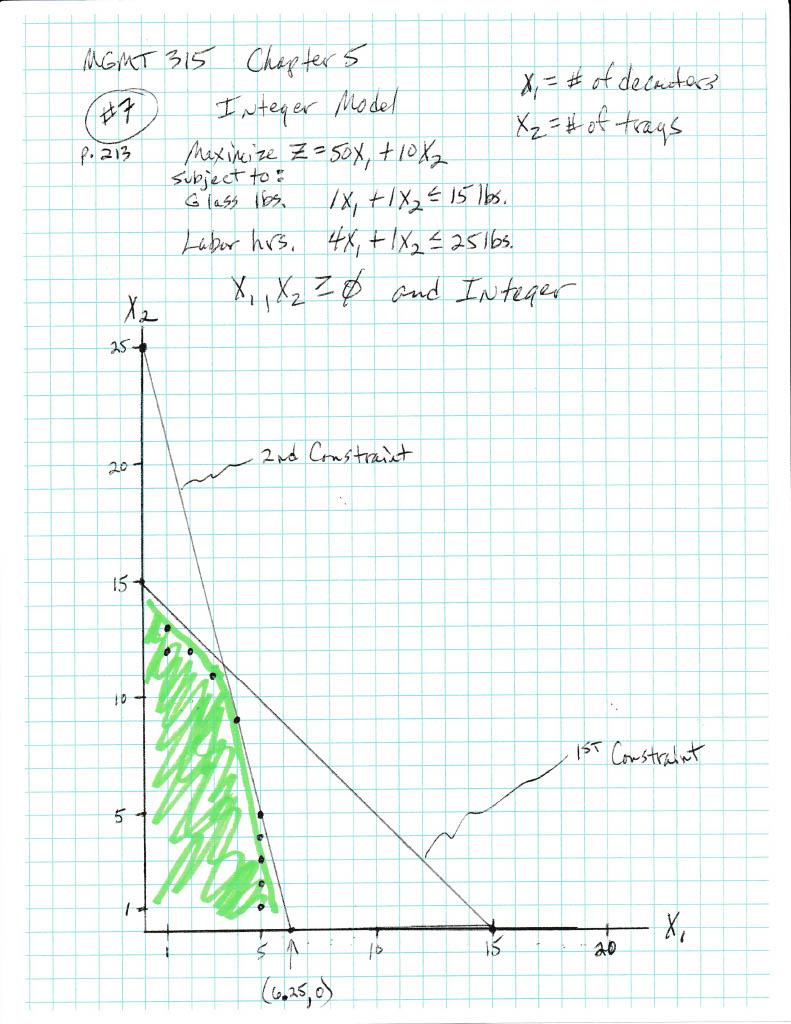 MGMT 315 Chapter 5
#7 Integer Model
p. 213
X₁ = # of decanters
X₂ = # of trays
Maximize Z = 50X₁ + 10X₂
subject to:
Glass lbs. 1X₁ + 1X₂ ≤ 15 lbs.
Labor hrs. 4X₁ + 1X₂ ≤ 25 lbs.
X₁, X₂ ≥ 0 and Integer
X₂
25
2nd Constraint
20
15
10
1ST Constraint
5
1
X₁
1 5 10 15 20
(6.25, 0)